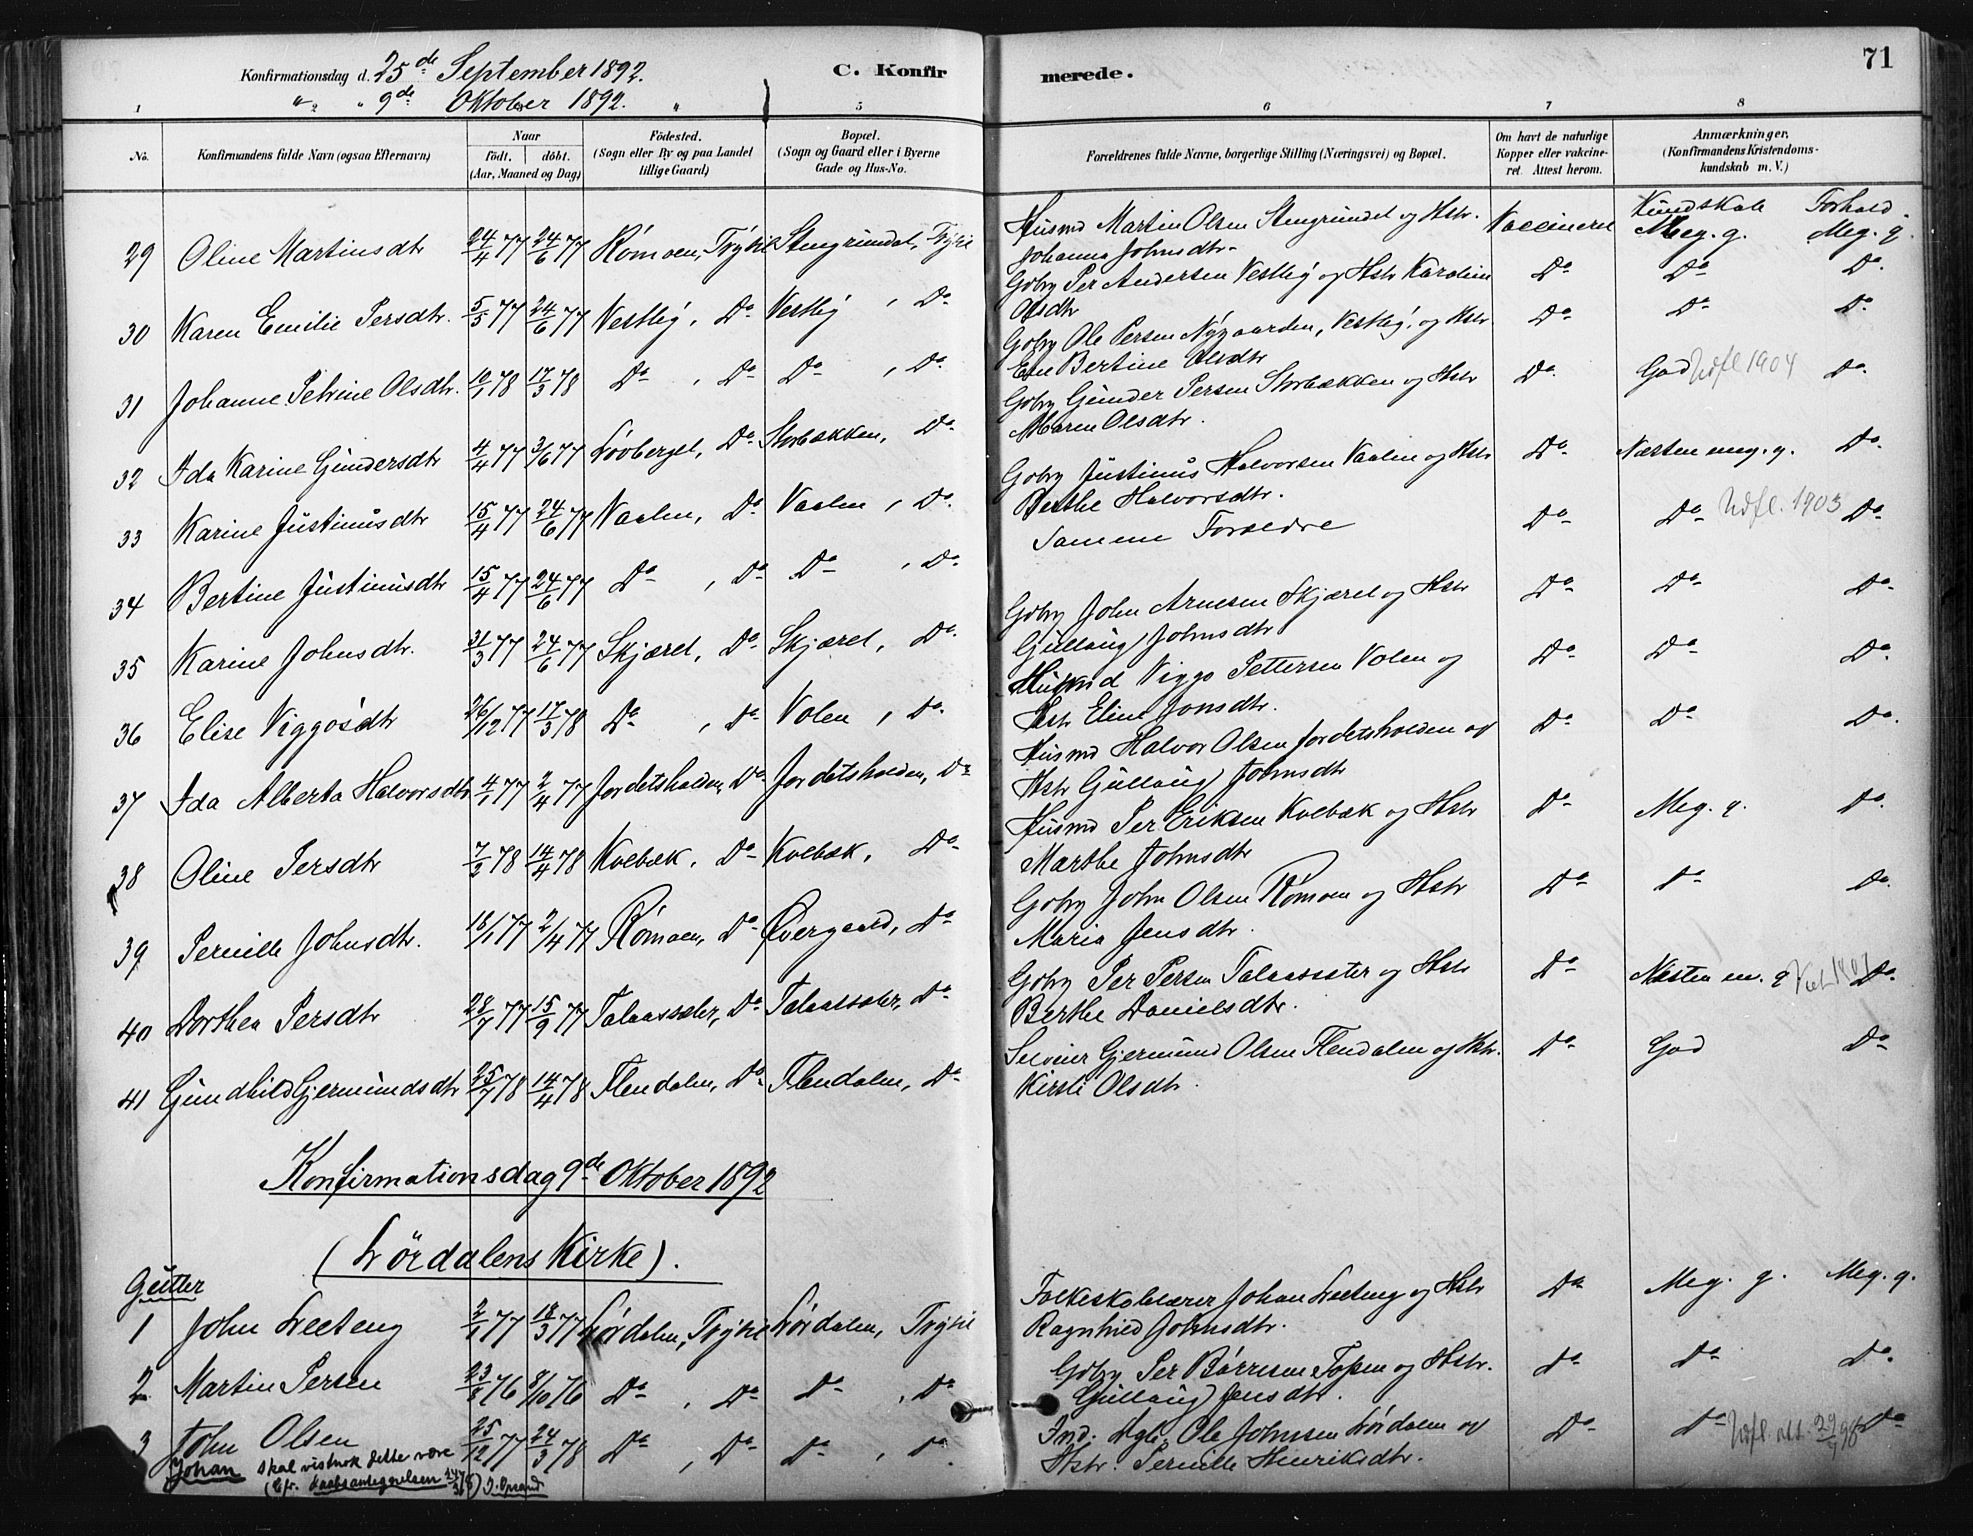 71
Konfirmationsdag d. 25de September 1892. C. Konfirmerede.
" " 9de Oktober 1892. "
1 2 5 6 7 8
No. Konfirmandens fulde Navn (ogsaa Efternavn) Naar födt. döbt. (Aar, Maaned og Dag) Födested. (Sogn eller By og paa Landet tillige Gaard) Bopæl. (Sogn og Gaard eller i Byerne Gade og Hus-No. Forældrenes fulde Navne, borgerlige Stilling (Næringsvei) og Bopæl. Om havt de naturlige Kopper eller vakcineret. Attest herom. Anmærkninger. (Konfirmandens Kristendomskundskab m. V.)
Kundskab Forhold.
29 Oline Martinsdtr 24/4 77 24/6 77 Römoen, Trysil Stengrundet, Trysil Husmd Martin Olsen Stengrundet og Hstr. Vaccineret Meg. g. Meg. g.
Johanna Johnsdtr.
30 Karen Emilie Persdtr. 5/5 77 24/6 77 Vestby, Do Vestby, Do Gbbr Per Andersen Vestby og Hstr Karoline Do Do Do
Olsdtr
31 Johanne Petrine Olsdtr. 10/1 78 17/3 78 Do, Do Do, Do Ole Persen Nygaarden, Vestby, og Hstr Do Do Do
Bertine Olsdtr
32 Ida Karine Gundersdtr 4/4 77 3/6 77 Lövberget, Do Storbækken, Do Gunder Persen Storbækken og Hstr Do God Udfl 1904 Do
Maren Olsdtr.
33 Karine Justinusdtr 15/4 77 24/6 77 Vaalen, Do Vaalen, Do Justinus Halvorsen Vaalen og Hstr Do Næsten meg. g. Do
Berthe Halvorsdtr.
34 Bertine Justinusdtr 15/4 77 24/6 77 Do, Do Do, Do Samme Forældre Do Do Udfl. 1903 Do
35 Karine Johnsdtr. 31/3 77 24/6 77 Skjæret, Do Skjæret, Do John Arnesen Skjæret og Hstr Do Do Do
Gullaug Johnsdtr
36 Elise Viggosdtr 26/12 77 17/3 78 Do, Do Volen, Do Husmd Viggo Pettersen Volen og Do Do Do
Hstr Eline Jonsdtr.
37 Ida Alberta Halvorsdtr 4/1 77 2/4 77 Jordetsholden, Do Jordetsholden, Do Husmd Halvor Olsen Jordetsholden og Do Do Do
Hstr Gullaug Johnsdtr
38 Oline Persdtr 7/2 78 14/4 78 Kvebæk, Do Kvebæk, Do Husmd Per Eriksen Kvebæk og Hstr Do Meg. g. Do
Marthe Johnsdtr
39 Pernille Johnsdtr. 18/1 77 2/4 77 Römoen, Do Övergaard, Do John Olsen Römoen og Hstr Do Do Do
Maria Jensdtr.
40 Dorthea Persdtr 28/7 77 15/9 77 Talaassæter, Do Talaassæter, Do Per Persen Talaassæter og Hstr Do Næsten m. g Do
Berthe Danielsdtr.
41 Gundhild Gjermundsdtr 25/1 78 14/4 78 Flendalen, Do Flendalen, Do Selveier Gjermund Olsen Flendalen og Hstr. Do God Do
Kirsti Olsdtr.
Konfirmationsdag 9de Oktober 1892
(Lördalens Kirke).
Gutter
1 John Leeteng 2/1 77 18/3 77 Lördalen, Trysil Lördalen, Trysil Folkeskolelærer Johan Leeteng og Hstr Do Meg. g. Meg. g.
Ragnhild Johnsdtr.
2 Martin Persen 8/10 76 Do, Do Do, Do Per Börresen Topen og Hstr. Do Do Do
Gullaug Jensdtr.
3 John Olsen 25/12 77 24/3 78 Do, Do Do, Do Ole Johnsen Lördalen og Do Do Udfl. Do
Hstr. Pernille Henriksdtr.
Johan skal vistnok dette være
(Cfr. Daabsantegnelsen